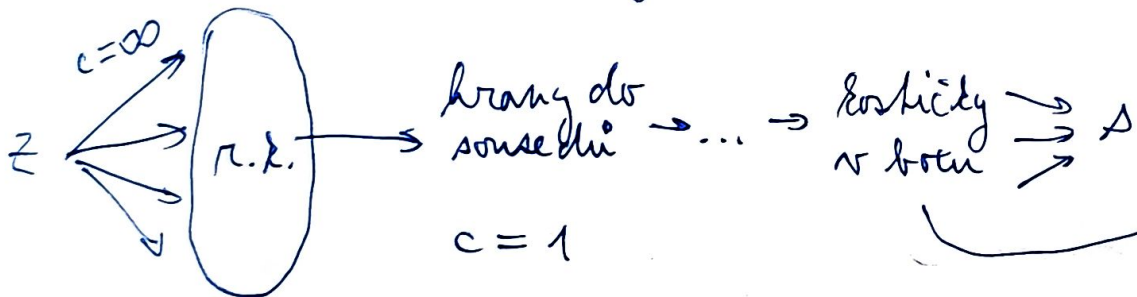 c=∞
z
r.k.
hrany do
sousedů → ... →
kostičky
v botu
s
c = 1